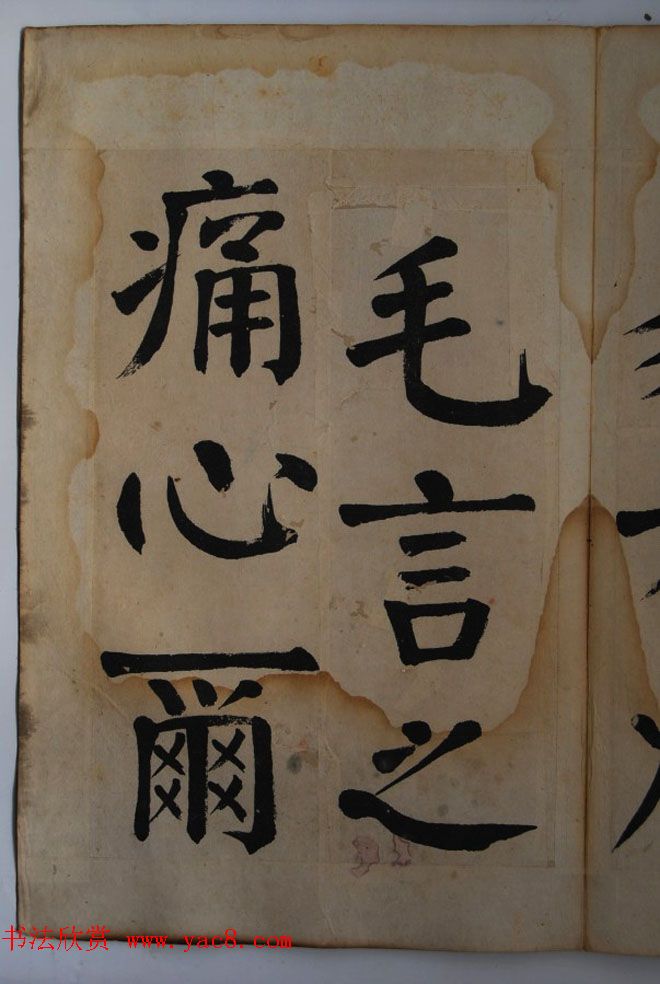 毛言之
痛心爾
书法欣赏 www.yac8.com